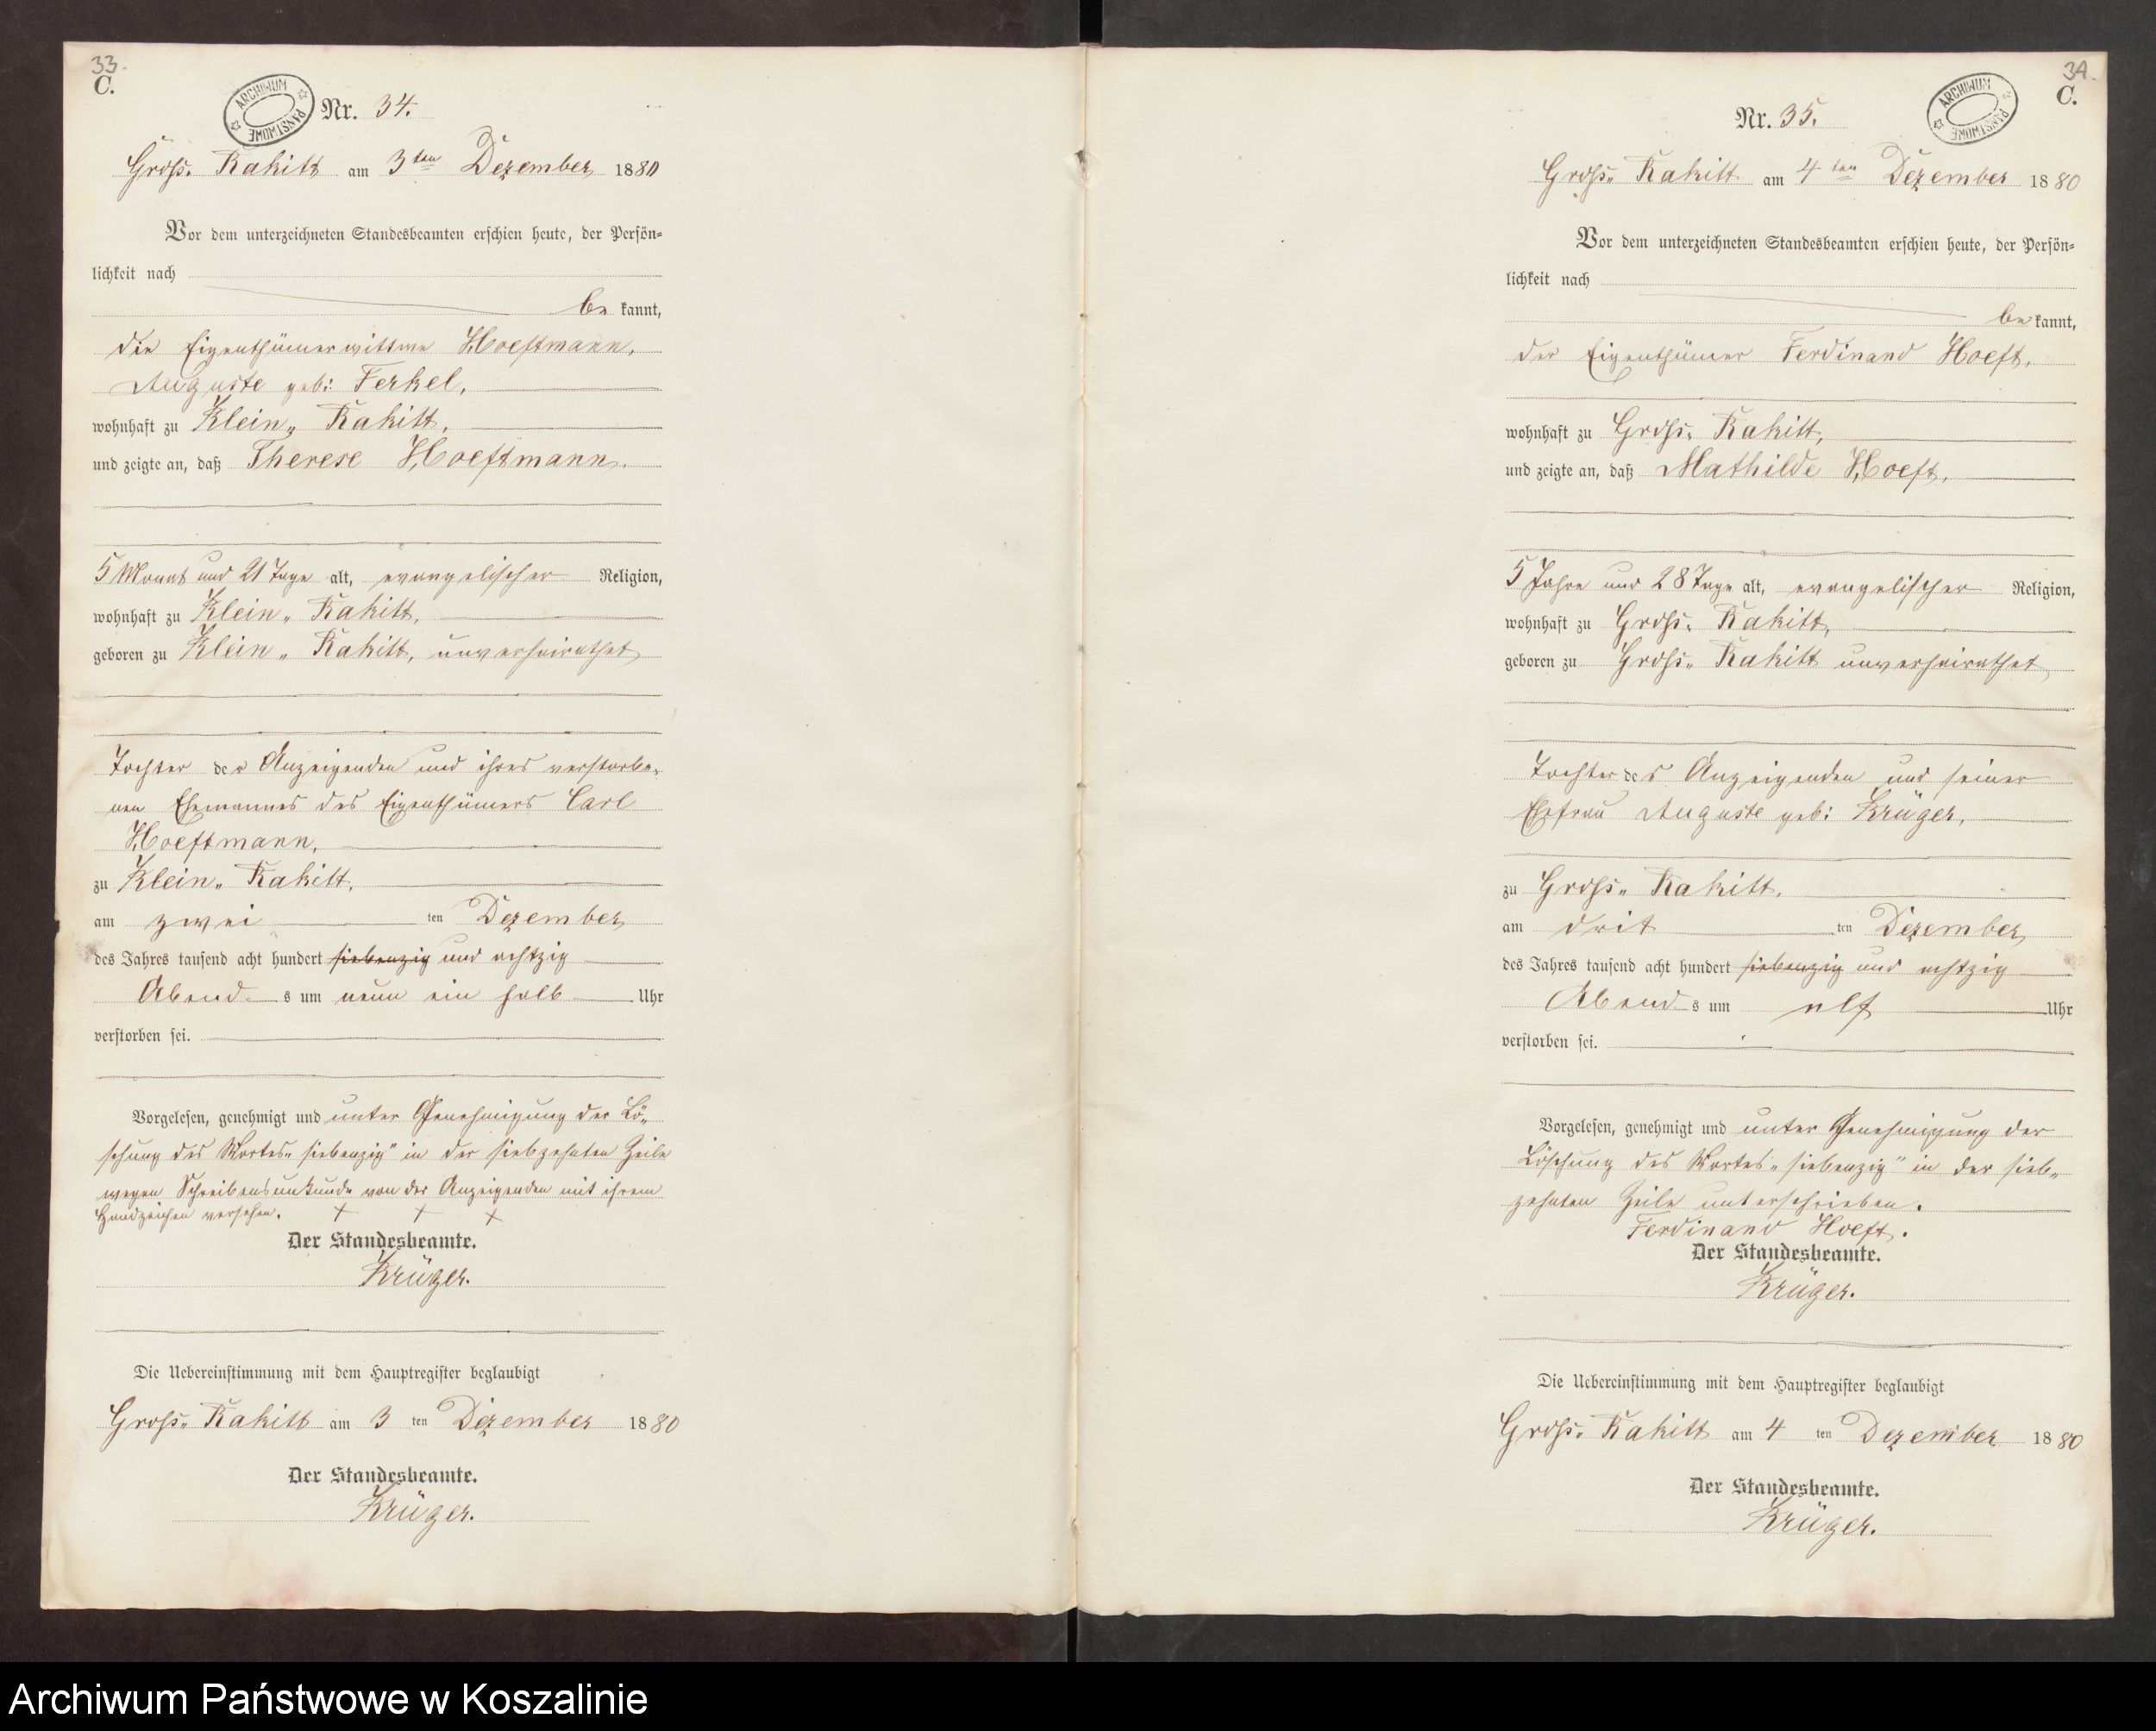 33.
C.
ARCHIWUM PAŃSTWOWE
Nr. 34.
Groß„ Rakitt am 3ten Dezember 1880
Vor dem unterzeichneten Standesbeamten erschien heute, der Persön=
lichkeit nach
be kannt,
die Eigenthümerwittwe Hoeftmann,
Auguste geb: Ferkel,
wohnhaft zu Klein„ Rakitt,
und zeigte an, daß Therese Hoeftmann.
5 Monat und 21 Tage alt, evangelischer Religion,
wohnhaft zu Klein„ Rakitt,
geboren zu Klein„ Rakitt, unverheirathet
Tochter der Anzeigenden und ihres verstorbe„
nen Ehemannes des Eigenthümers Carl
Hoeftmann,
zu Klein„ Rakitt,
am zwei ten Dezember
des Jahres tausend acht hundert siebenzig und achtzig
Abend s um neun ein halb Uhr
verstorben sei.
Vorgelesen, genehmigt und unter Genehmigung der Lö„
schung des Wortes „siebenzig" in der siebzehnten Zeile
wegen Schreibensunkunde von der Anzeigenden mit ihrem
Handzeichen versehen. + + +
Der Standesbeamte.
Krüger.
Die Uebereinstimmung mit dem Hauptregister beglaubigt
Groß„ Rakitt am 3 ten Dezember 1880
Der Standesbeamte.
Krüger.
34.
C.
ARCHIWUM PAŃSTWOWE
Nr. 35.
Groß„ Rakitt am 4ten Dezember 1880
Vor dem unterzeichneten Standesbeamten erschien heute, der Persön=
lichkeit nach
be kannt,
der Eigenthümer Ferdinand Hoeft,
wohnhaft zu Groß„ Rakitt,
und zeigte an, daß Mathilde Hoeft,
5 Jahre und 28 Tage alt, evangelischer Religion,
wohnhaft zu Groß„ Rakitt,
geboren zu Groß„ Rakitt unverheirathet
Tochter des Anzeigenden und seiner
Ehefrau Auguste geb: Krüger,
zu Groß„ Rakitt,
am drit ten Dezember
des Jahres tausend acht hundert siebenzig und achtzig
Abend s um elf Uhr
verstorben sei.
Vorgelesen, genehmigt und unter Genehmigung der
Löschung des Wortes „siebenzig" in der sieb„
zehnten Zeile unterschrieben.
Ferdinand Hoeft.
Der Standesbeamte.
Krüger.
Die Uebereinstimmung mit dem Hauptregister beglaubigt
Groß„ Rakitt am 4 ten Dezember 1880
Der Standesbeamte.
Krüger.
Archiwum Państwowe w Koszalinie